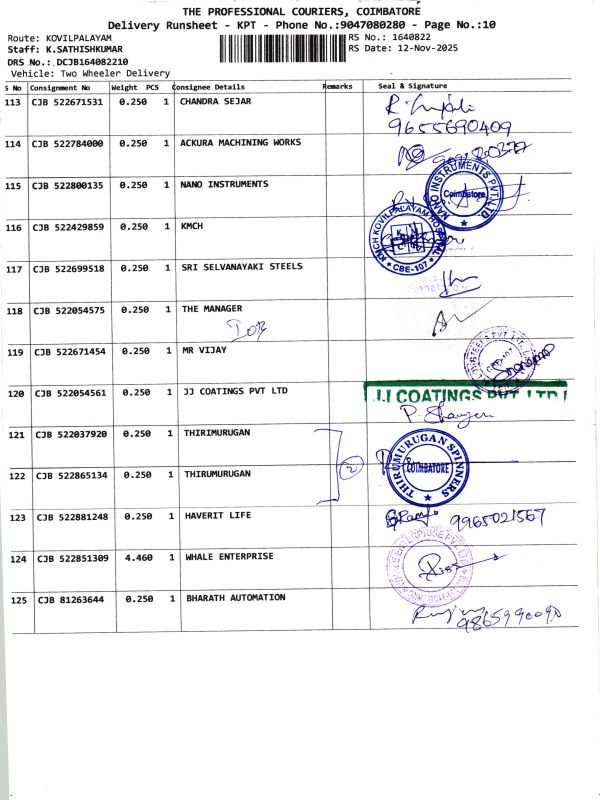 THE PROFESSIONAL COURIERS, COIMBATORE
Delivery Runsheet - KPT - Phone No.:9047080280 - Page No.:10
Route: KOVILPALAYAM RS No.: 1640822
Staff: K.SATHISHKUMAR RS Date: 12-Nov-2025
DRS No.: DCJB164082210
Vehicle: Two Wheeler Delivery
S No Consignment No Weight PCS Consignee Details Remarks Seal & Signature
113 CJB 522671531 0.250 1 CHANDRA SEJAR
9655690409
114 CJB 522784000 0.250 1 ACKURA MACHINING WORKS
115 CJB 522800135 0.250 1 NANO INSTRUMENTS
NANO INSTRUMENTS PVT.LTD
Coimbatore
116 CJB 522429859 0.250 1 KMCH
KMCH KOVILPALAYAM HOSPITAL
CBE-107
117 CJB 522699518 0.250 1 SRI SELVANAYAKI STEELS
118 CJB 522054575 0.250 1 THE MANAGER
119 CJB 522671454 0.250 1 MR VIJAY
120 CJB 522054561 0.250 1 JJ COATINGS PVT LTD
JJ COATINGS PVT LTD
121 CJB 522037920 0.250 1 THIRIMURUGAN
2
THIRUMURUGAN SPINNERS
COIMBATORE
122 CJB 522865134 0.250 1 THIRUMURUGAN
123 CJB 522881248 0.250 1 HAVERIT LIFE
9965021567
124 CJB 522851309 4.460 1 WHALE ENTERPRISE
WHALE ENTERPRISE PVT LTD
125 CJB 81263644 0.250 1 BHARATH AUTOMATION
9865990090